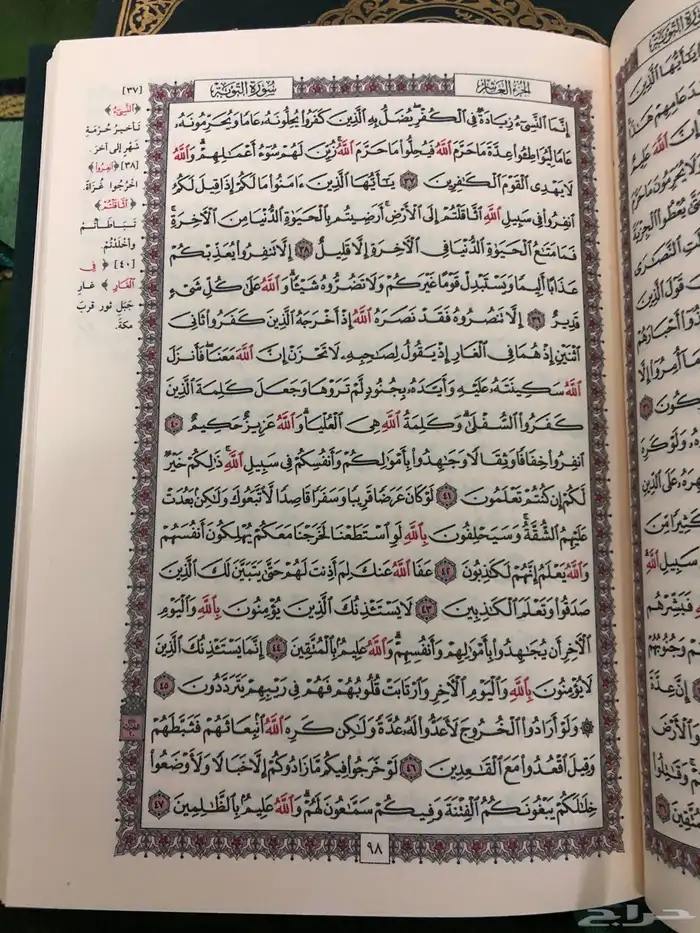 سُورَةُ التَّوْبَةِ
الجُزْءُ العَاشِرُ
إِنَّمَا النَّسِيءُ زِيَادَةٌ فِي الْكُفْرِ يُضَلُّ بِهِ الَّذِينَ كَفَرُوا يُحِلُّونَهُ عَامًا وَيُحَرِّمُونَهُ
عَامًا لِيُوَاطِئُوا عِدَّةَ مَا حَرَّمَ اللَّهُ فَيُحِلُّوا مَا حَرَّمَ اللَّهُ زُيِّنَ لَهُمْ سُوءُ أَعْمَالِهِمْ وَاللَّهُ
لَا يَهْدِي الْقَوْمَ الْكَافِرِينَ ٣٧ يَا أَيُّهَا الَّذِينَ ءَامَنُوا مَا لَكُمْ إِذَا قِيلَ لَكُمُ
انفِرُوا فِي سَبِيلِ اللَّهِ اثَّاقَلْتُمْ إِلَى الْأَرْضِ أَرَضِيتُم بِالْحَيَوٰةِ الدُّنْيَا مِنَ الْآخِرَةِ
فَمَا مَتَاعُ الْحَيَوٰةِ الدُّنْيَا فِي الْآخِرَةِ إِلَّا قَلِيلٌ ٣٨ إِلَّا تَنفِرُوا يُعَذِّبْكُمْ
عَذَابًا أَلِيمًا وَيَسْتَبْدِلْ قَوْمًا غَيْرَكُمْ وَلَا تَضُرُّوهُ شَيْئًا وَاللَّهُ عَلَىٰ كُلِّ شَيْءٍ
قَدِيرٌ ٣٩ إِلَّا تَنصُرُوهُ فَقَدْ نَصَرَهُ اللَّهُ إِذْ أَخْرَجَهُ الَّذِينَ كَفَرُوا ثَانِيَ
اثْنَيْنِ إِذْ هُمَا فِي الْغَارِ إِذْ يَقُولُ لِصَاحِبِهِ لَا تَحْزَنْ إِنَّ اللَّهَ مَعَنَا فَأَنزَلَ
اللَّهُ سَكِينَتَهُ عَلَيْهِ وَأَيَّدَهُ بِجُنُودٍ لَّمْ تَرَوْهَا وَجَعَلَ كَلِمَةَ الَّذِينَ
كَفَرُوا السُّفْلَىٰ وَكَلِمَةُ اللَّهِ هِيَ الْعُلْيَا وَاللَّهُ عَزِيزٌ حَكِيمٌ ٤٠
انفِرُوا خِفَافًا وَثِقَالًا وَجَاهِدُوا بِأَمْوَالِكُمْ وَأَنفُسِكُمْ فِي سَبِيلِ اللَّهِ ذَٰلِكُمْ خَيْرٌ
لَّكُمْ إِن كُنتُمْ تَعْلَمُونَ ٤١ لَوْ كَانَ عَرَضًا قَرِيبًا وَسَفَرًا قَاصِدًا لَّاتَّبَعُوكَ وَلَٰكِن بَعُدَتْ
عَلَيْهِمُ الشُّقَّةُ وَسَيَحْلِفُونَ بِاللَّهِ لَوِ اسْتَطَعْنَا لَخَرَجْنَا مَعَكُمْ يُهْلِكُونَ أَنفُسَهُمْ
وَاللَّهُ يَعْلَمُ إِنَّهُمْ لَكَاذِبُونَ ٤٢ عَفَا اللَّهُ عَنكَ لِمَ أَذِنتَ لَهُمْ حَتَّىٰ يَتَبَيَّنَ لَكَ الَّذِينَ
صَدَقُوا وَتَعْلَمَ الْكَاذِبِينَ ٤٣ لَا يَسْتَأْذِنُكَ الَّذِينَ يُؤْمِنُونَ بِاللَّهِ وَالْيَوْمِ
الْآخِرِ أَن يُجَاهِدُوا بِأَمْوَالِهِمْ وَأَنفُسِهِمْ وَاللَّهُ عَلِيمٌ بِالْمُتَّقِينَ ٤٤ إِنَّمَا يَسْتَأْذِنُكَ الَّذِينَ
لَا يُؤْمِنُونَ بِاللَّهِ وَالْيَوْمِ الْآخِرِ وَارْتَابَتْ قُلُوبُهُمْ فَهُمْ فِي رَيْبِهِمْ يَتَرَدَّدُونَ ٤٥
۞ وَلَوْ أَرَادُوا الْخُرُوجَ لَأَعَدُّوا لَهُ عُدَّةً وَلَٰكِن كَرِهَ اللَّهُ انبِعَاثَهُمْ فَثَبَّطَهُمْ
وَقِيلَ اقْعُدُوا مَعَ الْقَاعِدِينَ ٤٦ لَوْ خَرَجُوا فِيكُم مَّا زَادُوكُمْ إِلَّا خَبَالًا وَلَأَوْضَعُوا
خِلَالَكُمْ يَبْغُونَكُمُ الْفِتْنَةَ وَفِيكُمْ سَمَّاعُونَ لَهُمْ وَاللَّهُ عَلِيمٌ بِالظَّالِمِينَ ٤٧
٩٨
[٣٧]
﴿النَّسِيءُ﴾
تأخيرُ حُرْمَةِ
شَهْرٍ إلى آخَرَ.
[٣٨] ﴿انفِرُوا﴾
اخْرُجُوا غُزَاةً.
﴿اثَّاقَلْتُمْ﴾
تَبَاطَأْتُمْ
وَأَخْلَدْتُمْ.
[٤٠] ﴿فِي
الْغَارِ﴾ غَارِ
جَبَلِ ثورٍ قربَ
مكةَ.
حراج